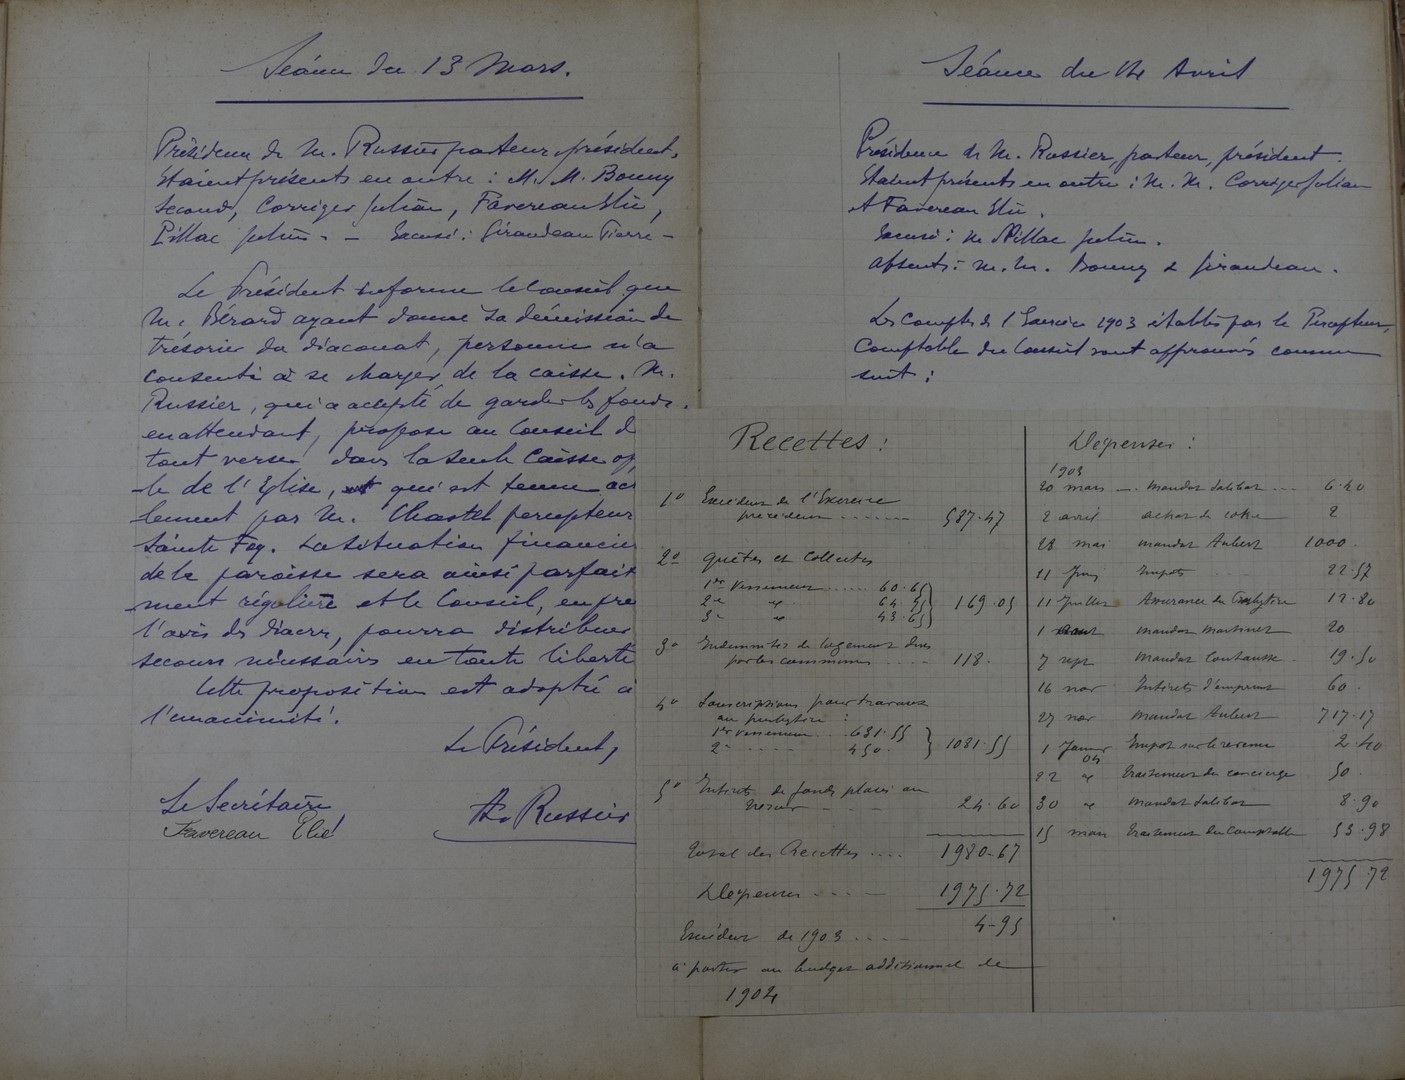 Séance du 13 Mars.
Présidence de M. Russier pasteur, président.
Etaient présents en outre : M. M. Bonny
Second, Corriger Julien, Favereau Elie,
Pillac Julien. — Excusé : Girandeau Pierre —
Le Président informe le Conseil que
M. Bérard ayant donné sa démission de
trésorier du diaconat, personne n'a
consenti à se charger de la caisse. M.
Russier, qui a accepté de garder les fonds
en attendant, propose au Conseil d
tout verser dans la seule caisse of
le de l'Eglise, qui est tenue ac
lement par M. Chastel percepteur
Sainte Foy. La situation financiè
de la paroisse sera ainsi parfait
ment régulière et le Conseil, en pre
l'avis des diacres, pourra distribuer
secours nécessaires en toute liberté
Cette proposition est adoptée à
l'unanimité.
Le Président,
Le Secrétaire
Favereau Elie
Russier
Séance du 14 Avril
Présidence de M. Russier, pasteur, président.
Etaient présents en outre : M. M. Corriger Julien
et Favereau Elie.
Excusé : M Pillac Julien.
Absents : M. M. Bonny & Girandeau.
Les Comptes de l'Exercice 1903 établis par le Percepteur,
Comptable du Conseil sont approuvés comme
suit :
Recettes :
1° Excédent de l'Exercice
précédent ....... 587.47
2° Quêtes et Collectes
1er Versement ..... 60.65
2e " 64.75
3e " 43.65 } 169.05
3° Indemnités de logement dues
par les communes .... 118.
4° Souscriptions pour travaux
au presbytère :
1er versement ... 631.55
2e .... 450. } 1081.55
5° Intérêts de fonds placés au
trésor — — 24.60
Total des Recettes .... 1980.67
Dépenses .... 1975.72
Excédent de 1903 .... 4.95
à porter au budget additionnel de
1904
Dépenses :
1903
20 mars — Mandat Salibat ... 6.40
2 avril achat de coke 2
28 mai mandat Aubert 1000.
11 Juin Impôts 22.57
11 Juillet Assurance du Presbytère 12.80
1 mandat Martinet 20
7 sept Mandat 19.50
16 nov Intérêts d'emprunt 60.
27 nov Mandat Aubert 717.17
1 Janvier 04 Impôt sur le revenu 2.40
22 " Traitement du concierge 50.
30 " Mandat Salibat 8.90
15 mars Traitement du Comptable 53.98
1975.72